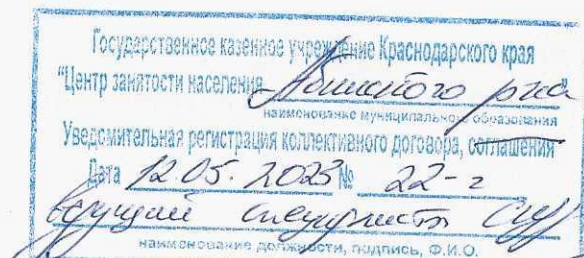 Государственное казенное учреждение Краснодарского края
"Центр занятости населения Абинского р-на"
наименование муниципального образования
Уведомительная регистрация коллективного договора, соглашения
Дата 12.05.2023 № 22-г
Ведущий специалист
наименование должности, подпись, Ф.И.О.